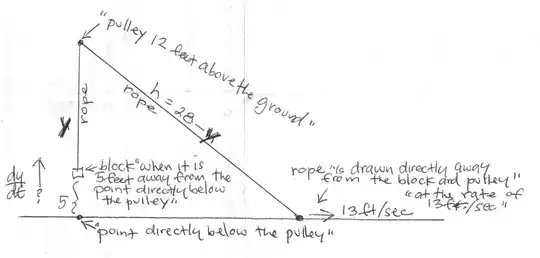 "pulley 12 feet above the ground"
rope
rope
h = 28 -
block "when it is
5 feet away from the
point directly below
the pulley"
dy/dt ?
5
rope "is drawn directly away
from the block and pulley"
"at the rate of
13 ft/sec"
13 ft/sec
"point directly below the pulley"